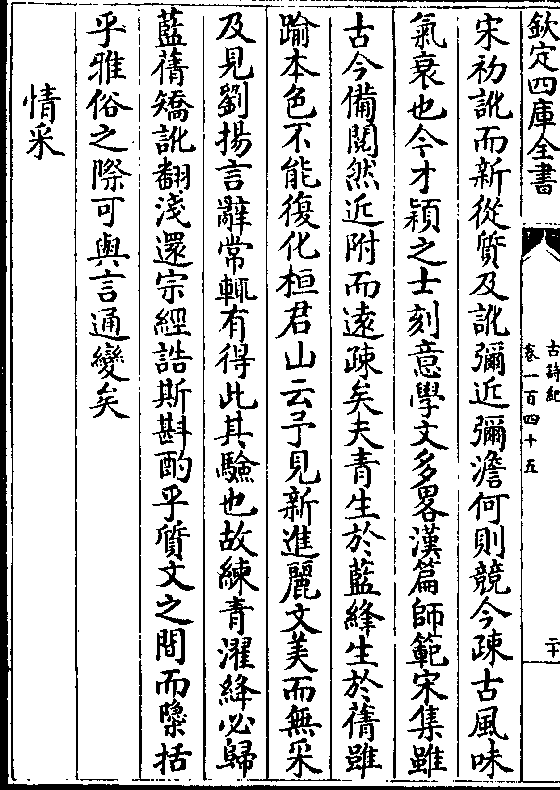 欽定四庫全書
古詩紀
卷一百四十五
二十
宋初訛而新從質及訛彌近彌澹何則競今疎古風味
氣衰也今才穎之士刻意學文多畧漢篇師範宋集雖
古今備閱然近附而遠疎矣夫青生於藍絳生於蒨雖
踰本色不能復化桓君山云予見新進麗文美而無采
及見劉揚言辭常輒有得此其驗也故練青濯絳必歸
藍蒨矯訛翻淺還宗經誥斯斟酌乎質文之間而檃括
乎雅俗之際可與言通變矣
情采